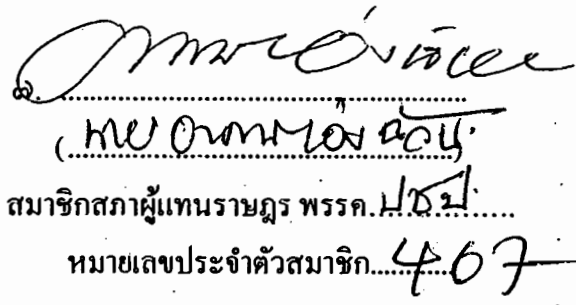 ๗.
(นาย อาคม เอ่งฉ้วน)
สมาชิกสภาผู้แทนราษฎร พรรค ปชป.
หมายเลขประจำตัวสมาชิก 467